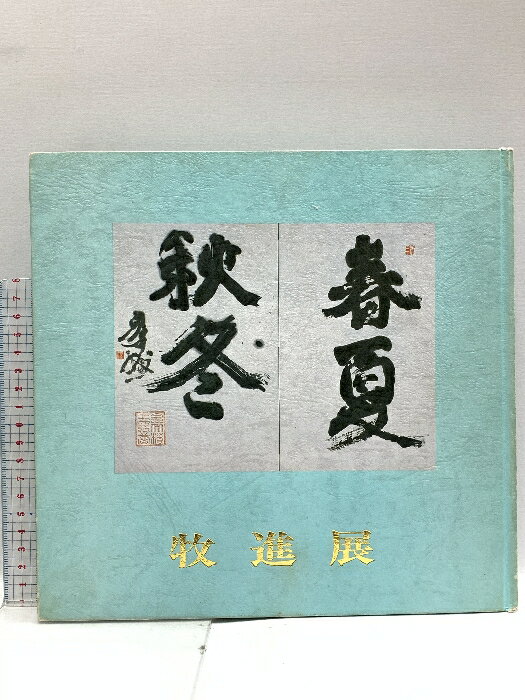 春夏
秋冬
牧進展